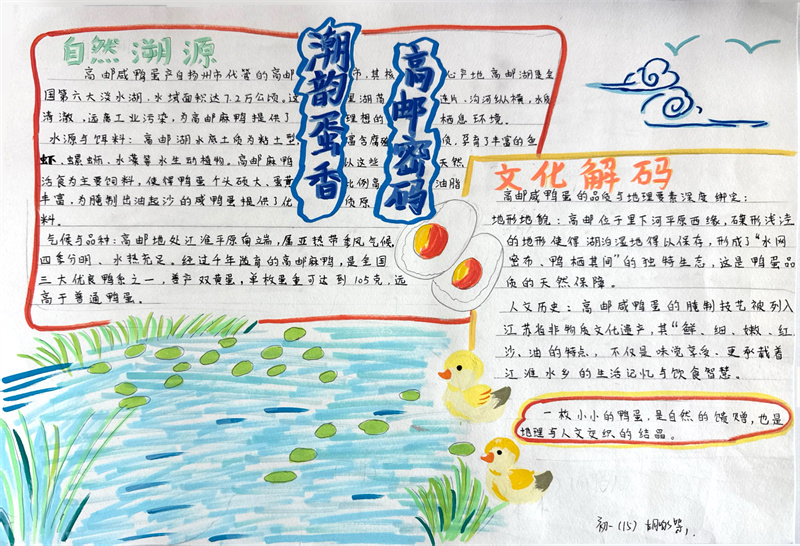 潮韵蛋香
高邮密码
自然溯源
高邮咸鸭蛋产自扬州市代管的高邮市,其核心产地高邮湖是全
国第六大淡水湖.水域面积达7.2万公顷,这里湖荡连片,沟河纵横,水质
清澈,远离工业污染,为高邮麻鸭提供了理想的栖息环境。
水源与饵料:高邮湖水底土质为粘土型,富含腐殖质,孕育了丰富的鱼
虾、螺蛳,水藻等水生动植物。高邮麻鸭以这些天然
活食为主要饲料,使得鸭蛋个头硕大、蛋黄比例高油脂
丰富,为腌制出油起沙的咸鸭蛋提供了优质原
料。
气候与品种:高邮地处江淮平原南端,属亚热带季风气候,
四季分明、水热充足。经过千年演育的高邮麻鸭,是全国
三大优良鸭系之一,善产双黄蛋,单枚蛋重可达到105克,远
高于普通鸭蛋。
文化解码
高邮咸鸭蛋的品质与地理要素深度绑定:
地形地貌:高邮位于里下河平原西缘,碟形浅洼
的地形使得湖泊湿地得以保存,形成了“水网
密布、鸭栖其间”的独特生态,这是鸭蛋品
质的天然保障。
人文历史:高邮咸鸭蛋的腌制技艺被列入
江苏省非物质文化遗产,其“鲜、细、嫩、红、
沙、油的特点,不仅是味觉享受,更承载着
江淮水乡的生活记忆与饮食智慧。
一枚小小的鸭蛋,是自然的馈赠,也是
地理与人文交织的结晶。
初一(15)